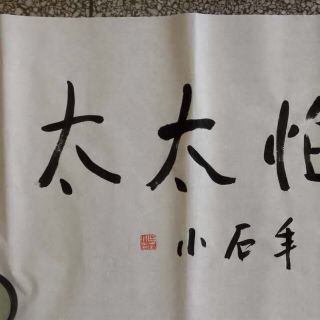 怕太太
石小